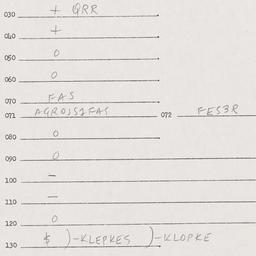 030 + QRR
040 +
050 0
060 0
070 FAS
071 AGROJSIFAS 072 FES3R
080 0
090 0
100 —
110 —
120 0
130 $ )-KLEPKES )-KLOPKE